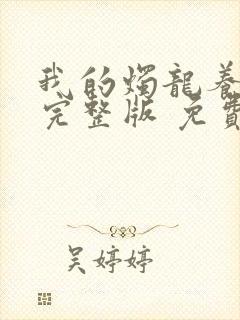 我的燭龍養
完整版 免費
吴婷婷